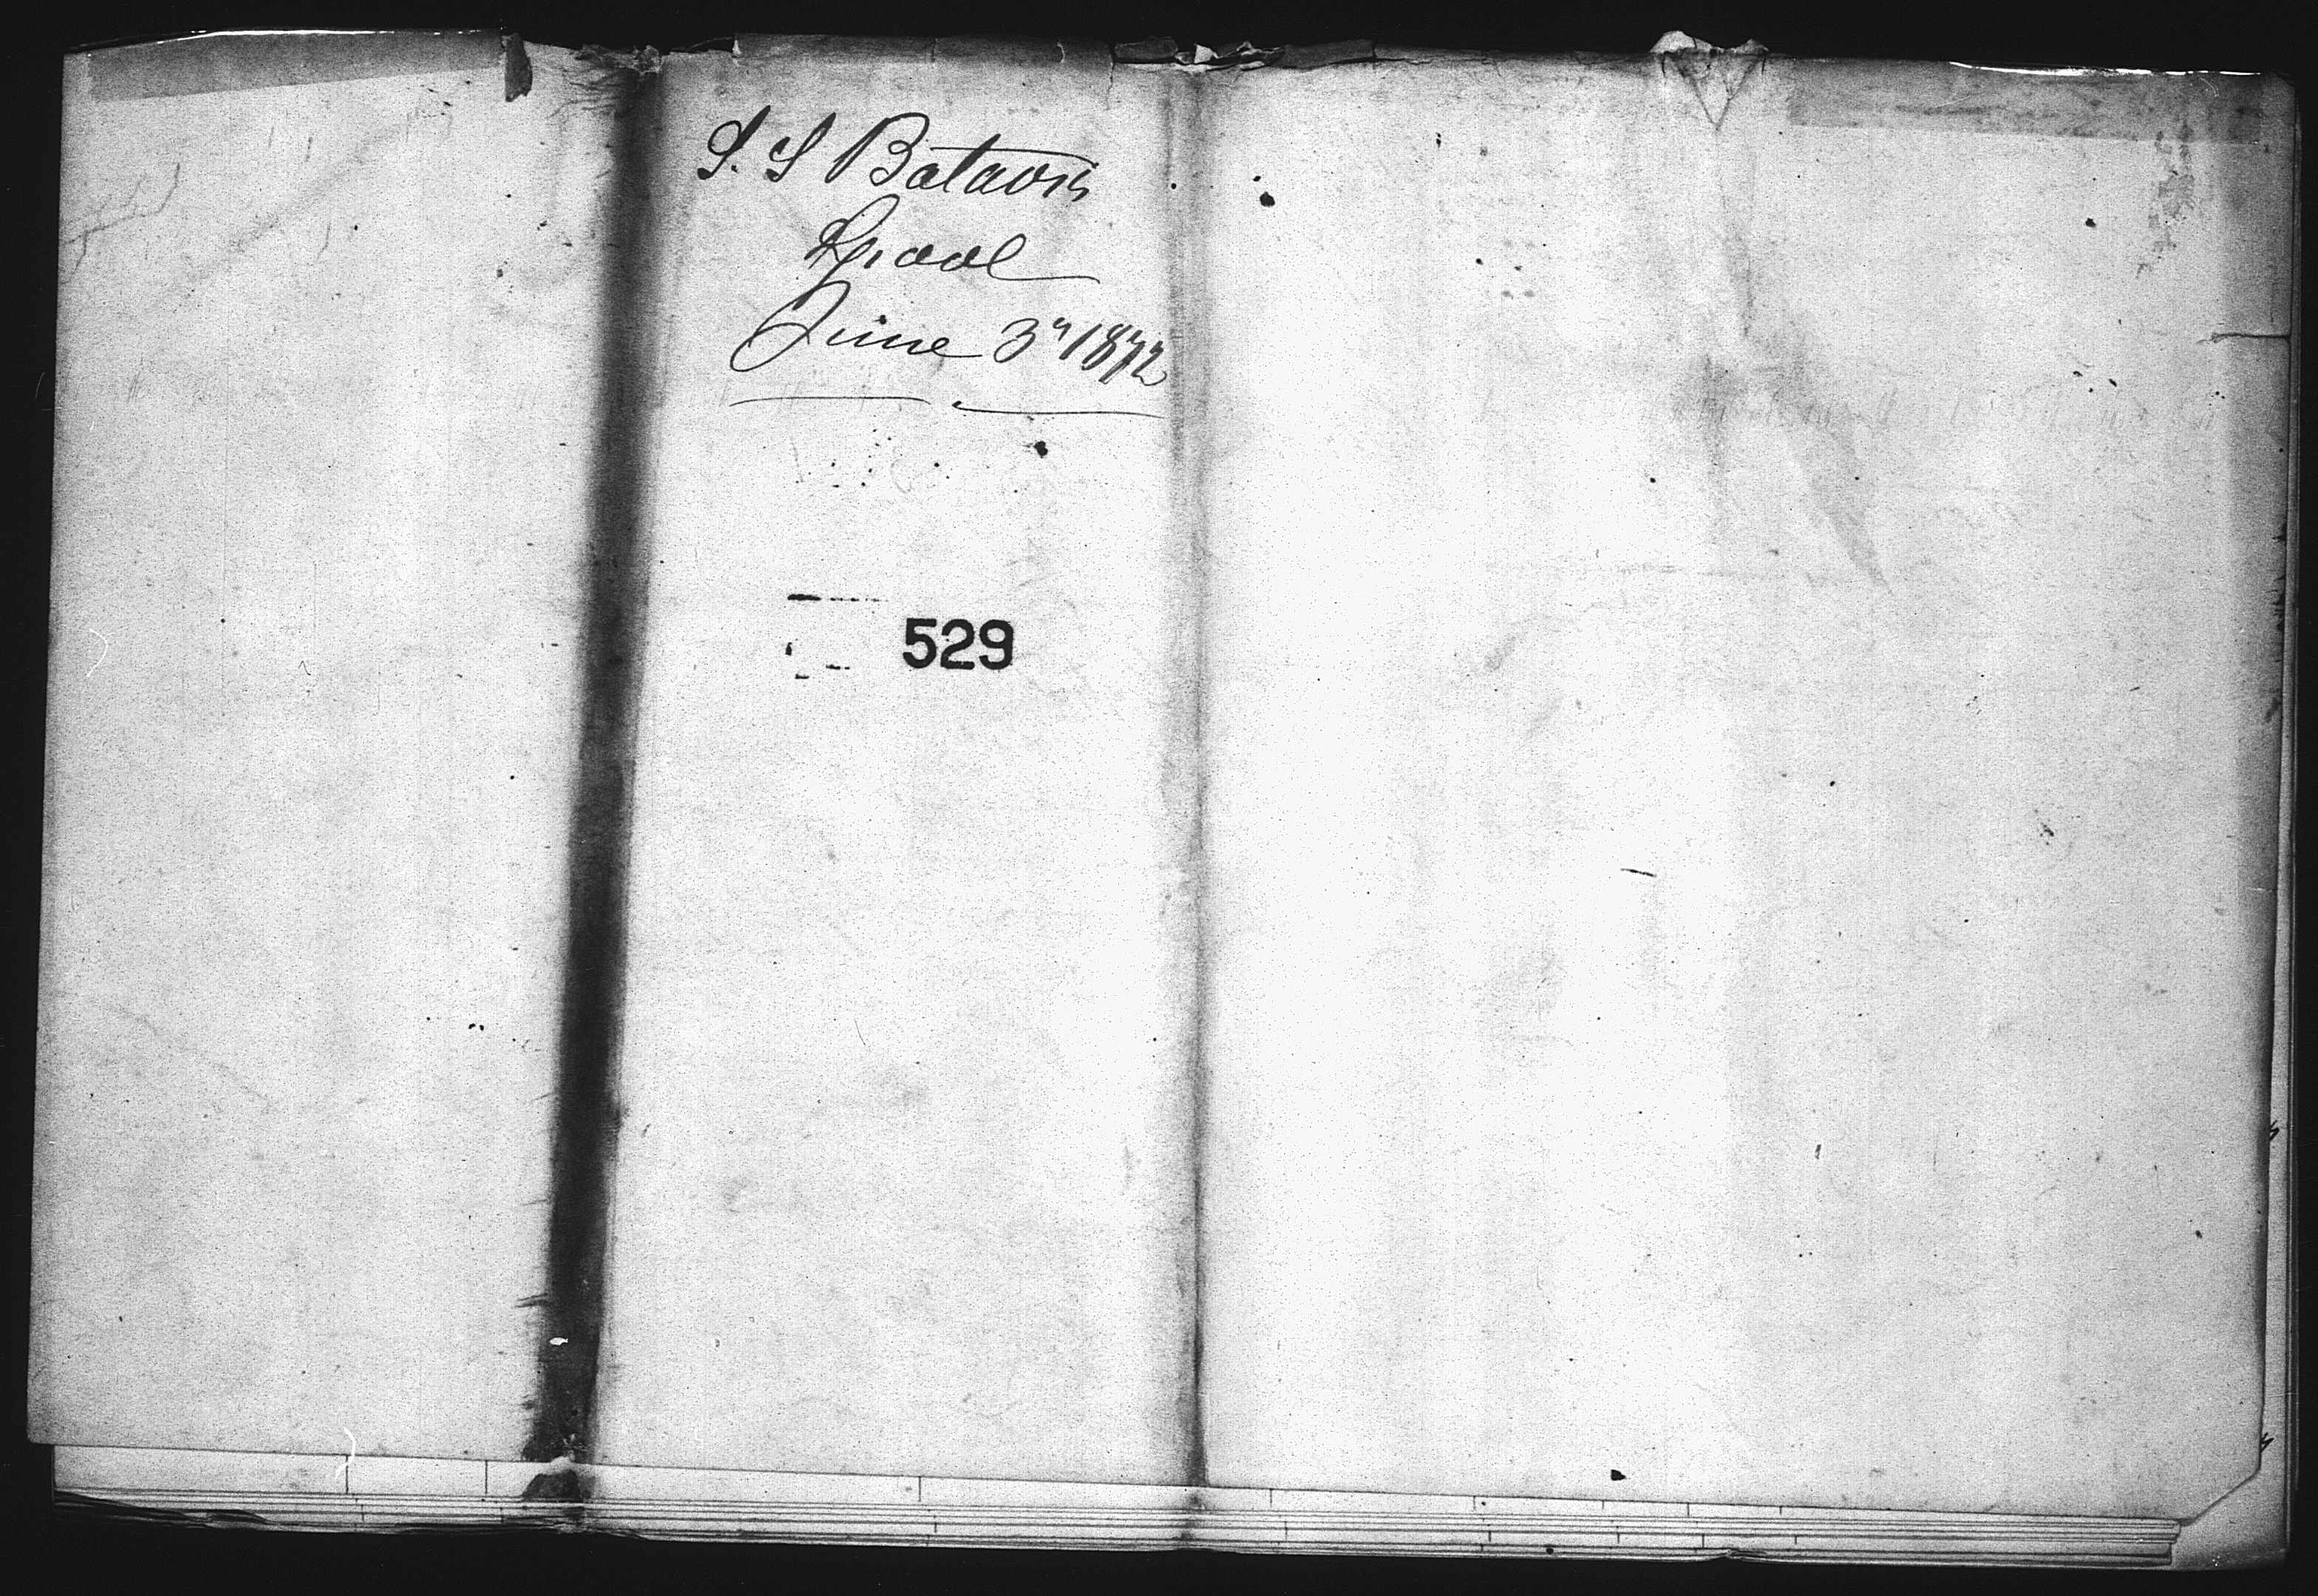 S. S Batavia
Lpool
June 3d 1872
529